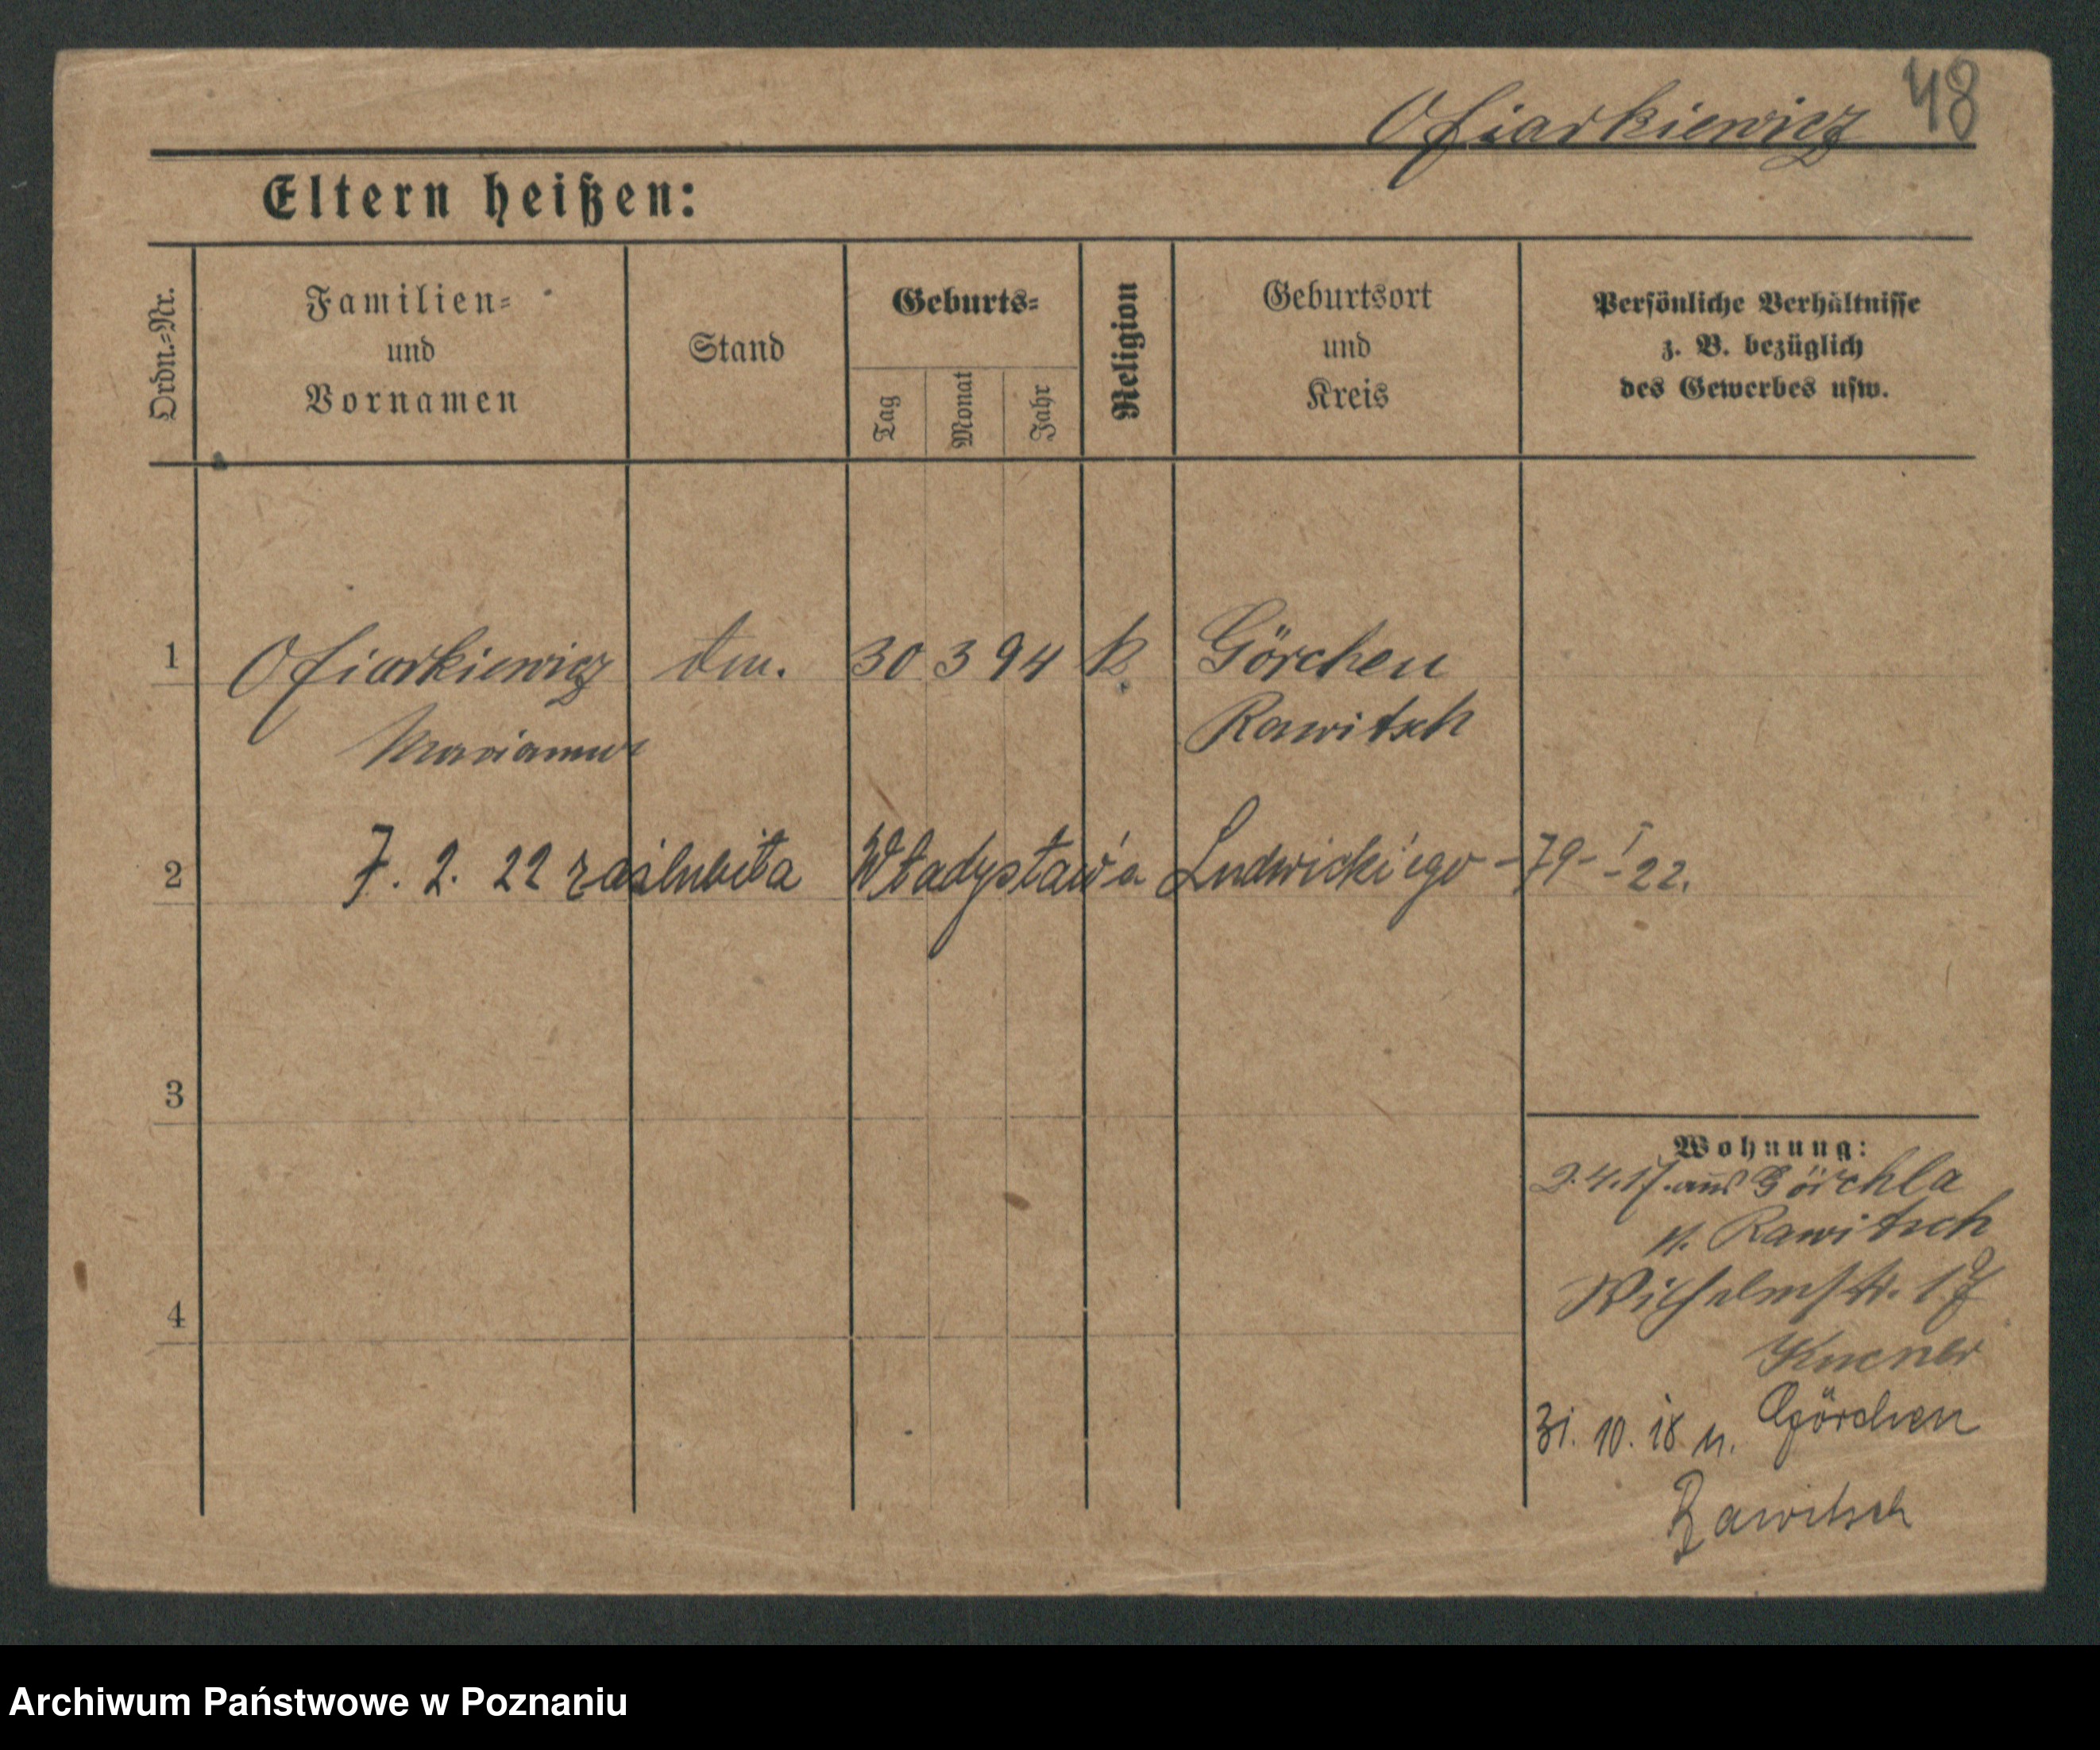 Ofiarkiewicz 48
Eltern heißen:
Ordn.-Nr.
Familien-
und
Vornamen
Stand
Geburts-
Tag
Monat
Jahr
Religion
Geburtsort
und
Kreis
Persönliche Verhältnisse
z. B. bezüglich
des Gewerbes usw.
1 Ofiarkiewicz 30 3 94 k Görchen
Marianna Rawitsch
2 7. 2. 22 zaślubiła Władysława Ludwickiego -79- I 22.
3
4
Wohnung:
2.4.17. aus Görchla
n. Rawitsch
Wilhelmstr. 17
31. 10. 18 n. Görchen
Rawitsch
Archiwum Państwowe w Poznaniu